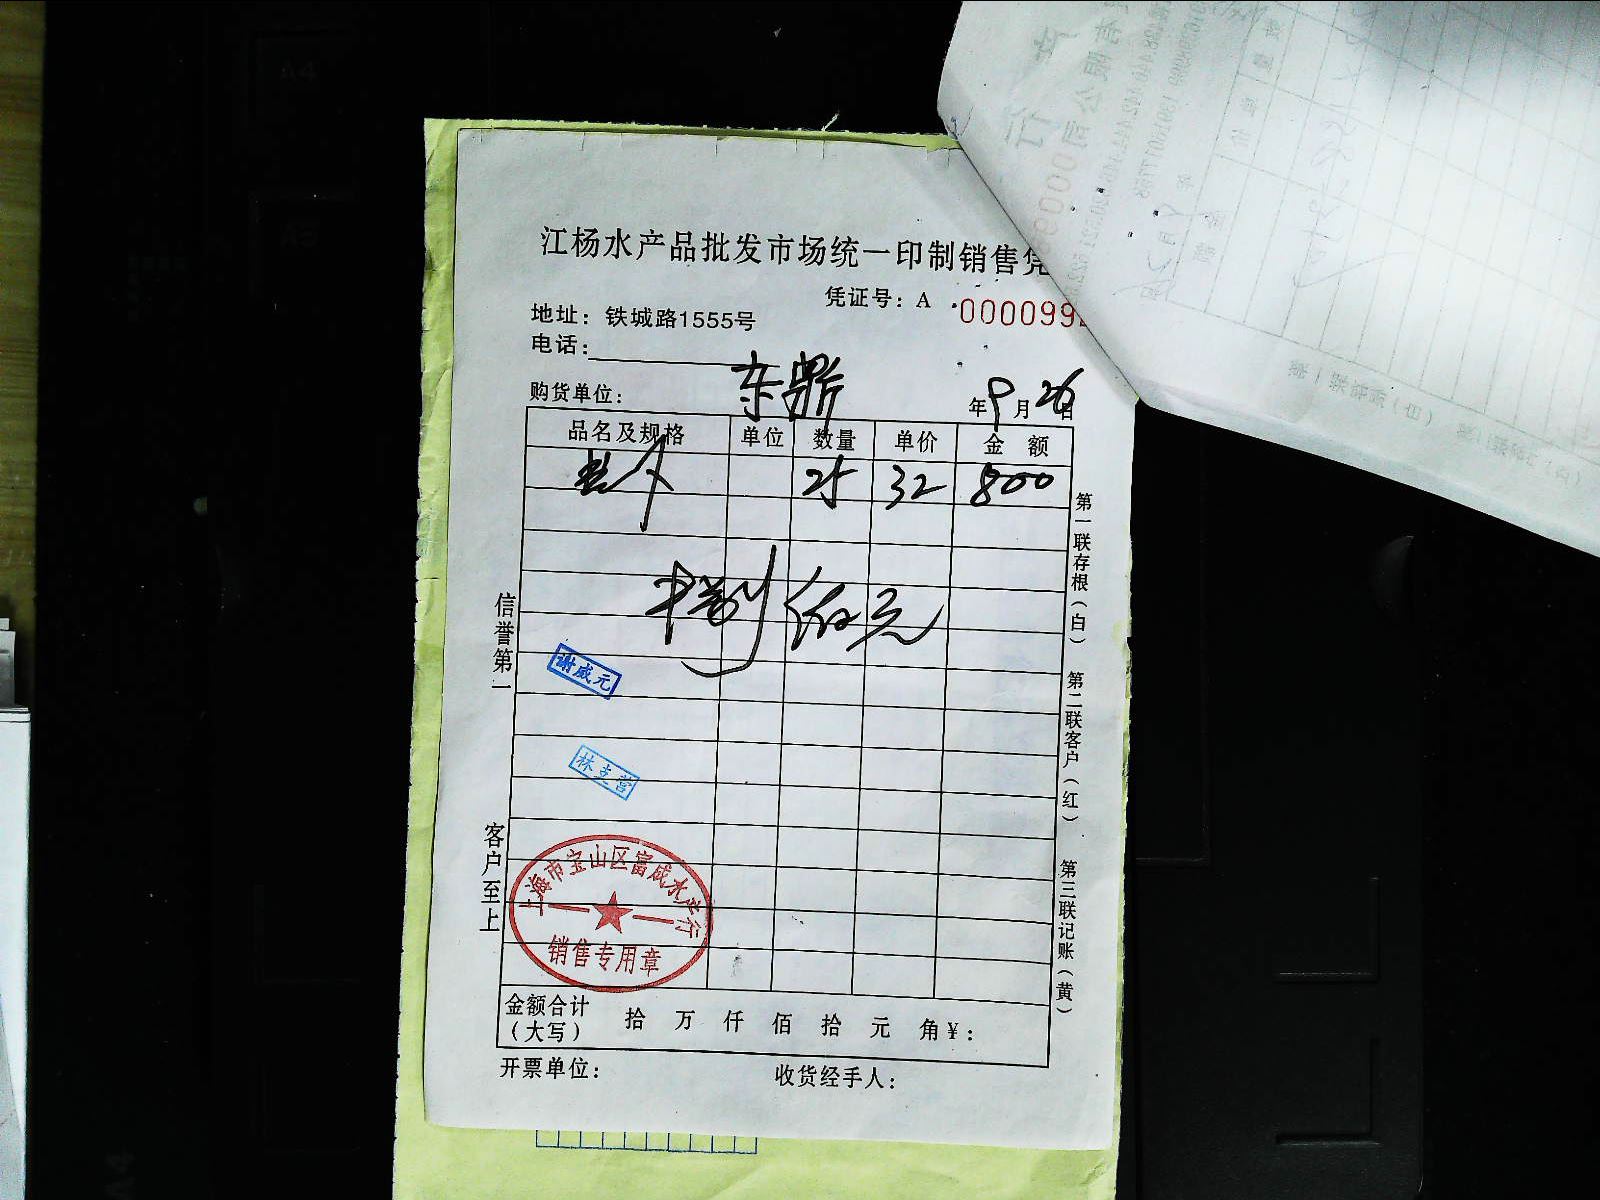 江杨水产品批发市场统一印制销售凭
凭证号：A 000099
地址：铁城路1555号
电话：
购货单位：东鼎
年9月26日
品名及规格 单位 数量 单价 金额
25 32 800
捌佰元
信誉第一
客户至上
谢咸元
林志营
上海市宝山区富成水产行
销售专用章
第一联存根（白）
第二联客户（红）
第三联记账（黄）
金额合计（大写） 拾 万 仟 佰 拾 元 角 ¥：
开票单位： 收货经手人：